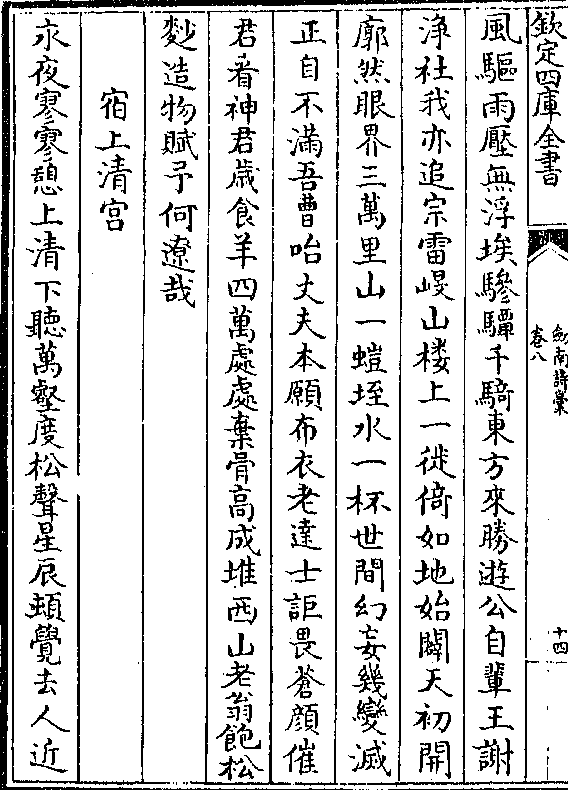 欽定四庫全書
劍南詩稾
卷八
十四
風驅雨壓無浮埃驂驔千騎東方來勝遊公自輩王謝
淨社我亦追宗雷㟭山樓上一徙倚如地始闢天初開
廓然眼界三萬里山一螘垤水一杯世間幻妄幾變滅
正自不滿吾曹咍丈夫本願布衣老達士詎畏蒼顔催
君看神君歲食羊四萬處處棄骨高成堆西山老翁飽松
麨造物賦予何遼哉
宿上清宫
永夜寥寥憩上清下聽萬壑度松聲星辰頓覺去人近